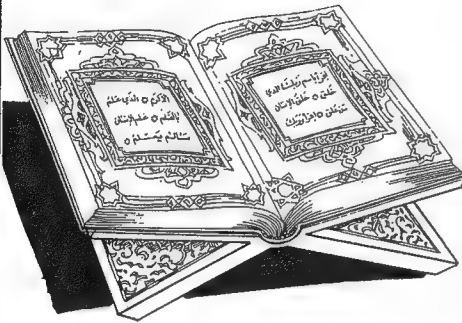 اقرأ باسم ربك الذي
خلق ○ خلق الإنسان
من علق ○ اقرأ وربك
الأكرم ○ الذي علم
بالقلم ○ علم الإنسان
ما لم يعلم ○